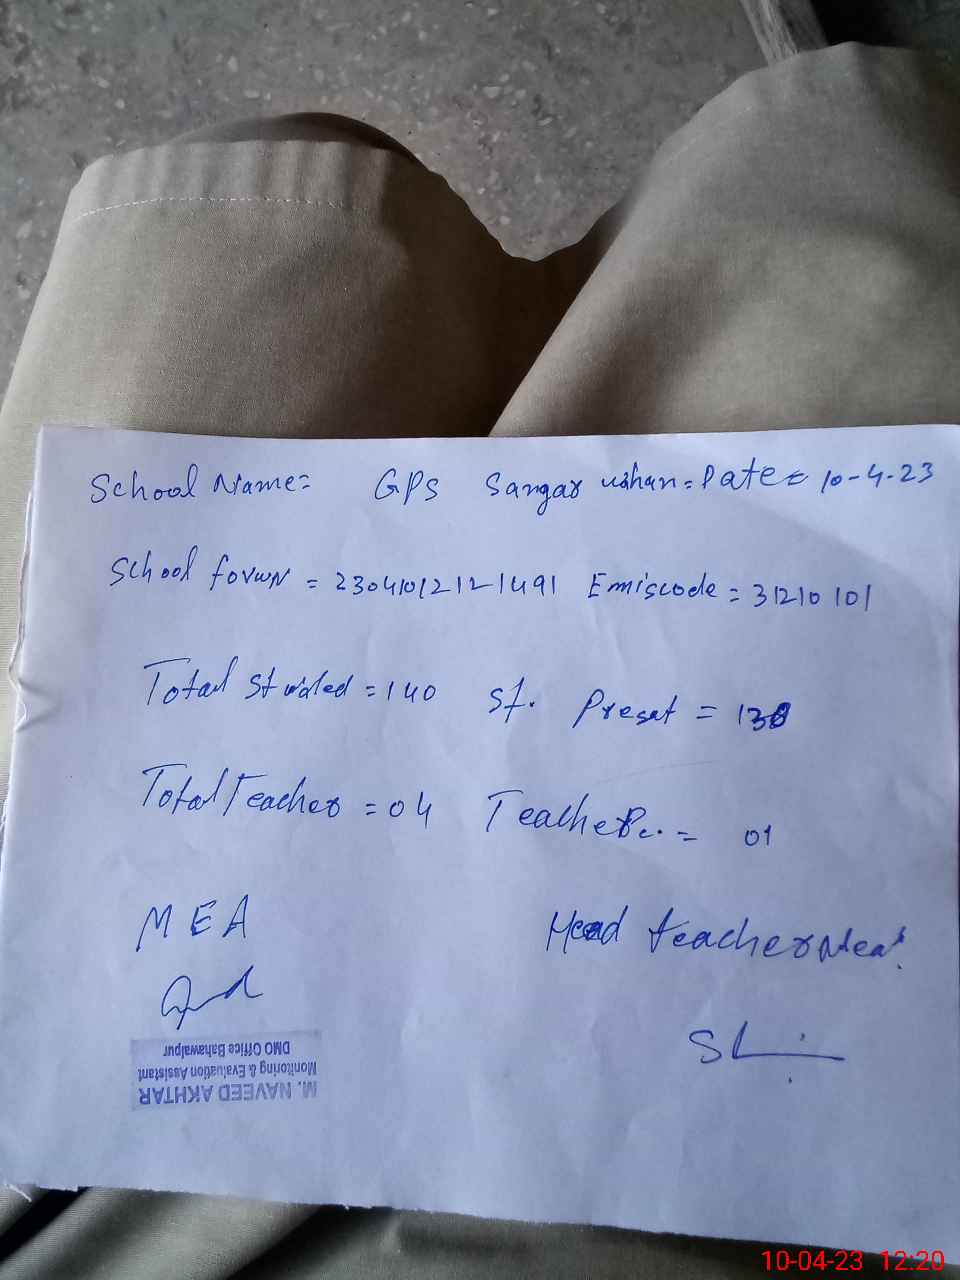 School Name= GPS Sangar Date= 10-4-23
School = 23041012121491 Emiscode = 31210101
Total = 140 St. Preset = 138
Total Teacher = 04 Teacher = 01
MEA Head teacher
DMO Office Bahawalpur
Monitoring & Evaluation Assistant
M. NAVEED AKHTAR
10-04-23 12:20